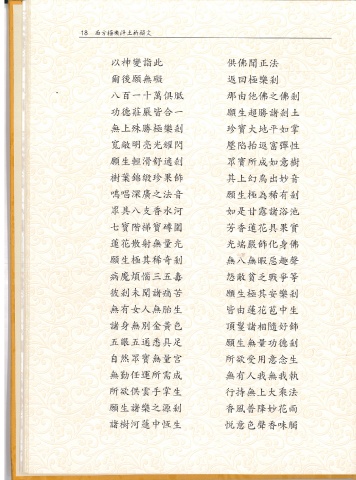 18 西方極樂淨土祈願文
以神變詣此 供佛聞正法
爾後願無礙 返回極樂剎
八百一十萬俱胝 那由他佛之佛剎
功德莊嚴皆合一 願生超勝諸剎土
無上殊勝極樂剎 珍寶大地平如掌
寬敞明亮光耀閃 壓陷抬返富彈性
願生輕滑舒適剎 眾寶所成如意樹
樹葉錦緞珍果飾 其上幻鳥出妙音
鳴唱深廣之法音 願生極為稀有剎
眾具八支香水河 如是甘露諸浴池
七寶階梯寶磚圍 芳香蓮花具果實
蓮花散射無量光 光端嚴飾化身佛
願生極其稀奇剎 無八無暇惡趣聲
病魔煩惱三五毒 怨敵貧乏戰爭等
彼剎未聞諸痛苦 願生極其安樂剎
無有女人無胎生 皆由蓮花苞中生
諸身無別金黃色 頂髻諸相隨好飾
五眼五通悉具足 願生無量功德剎
自然眾寶無量宮 所欲受用意念生
無勤任運所需成 無有人我無我執
所欲供雲手掌生 行持無上大乘法
願生諸樂之源剎 香風普降妙花雨
諸樹河蓮中恆生 悅意色聲香味觸